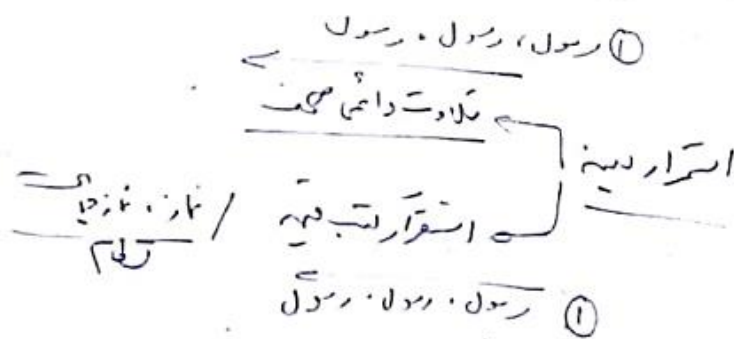 ① رسول، رسول، رسول
تلاوت دائمی صحف
استمرار بینه
استقرار کتب قیمه / نماز، نماز
① رسول، رسول، رسول